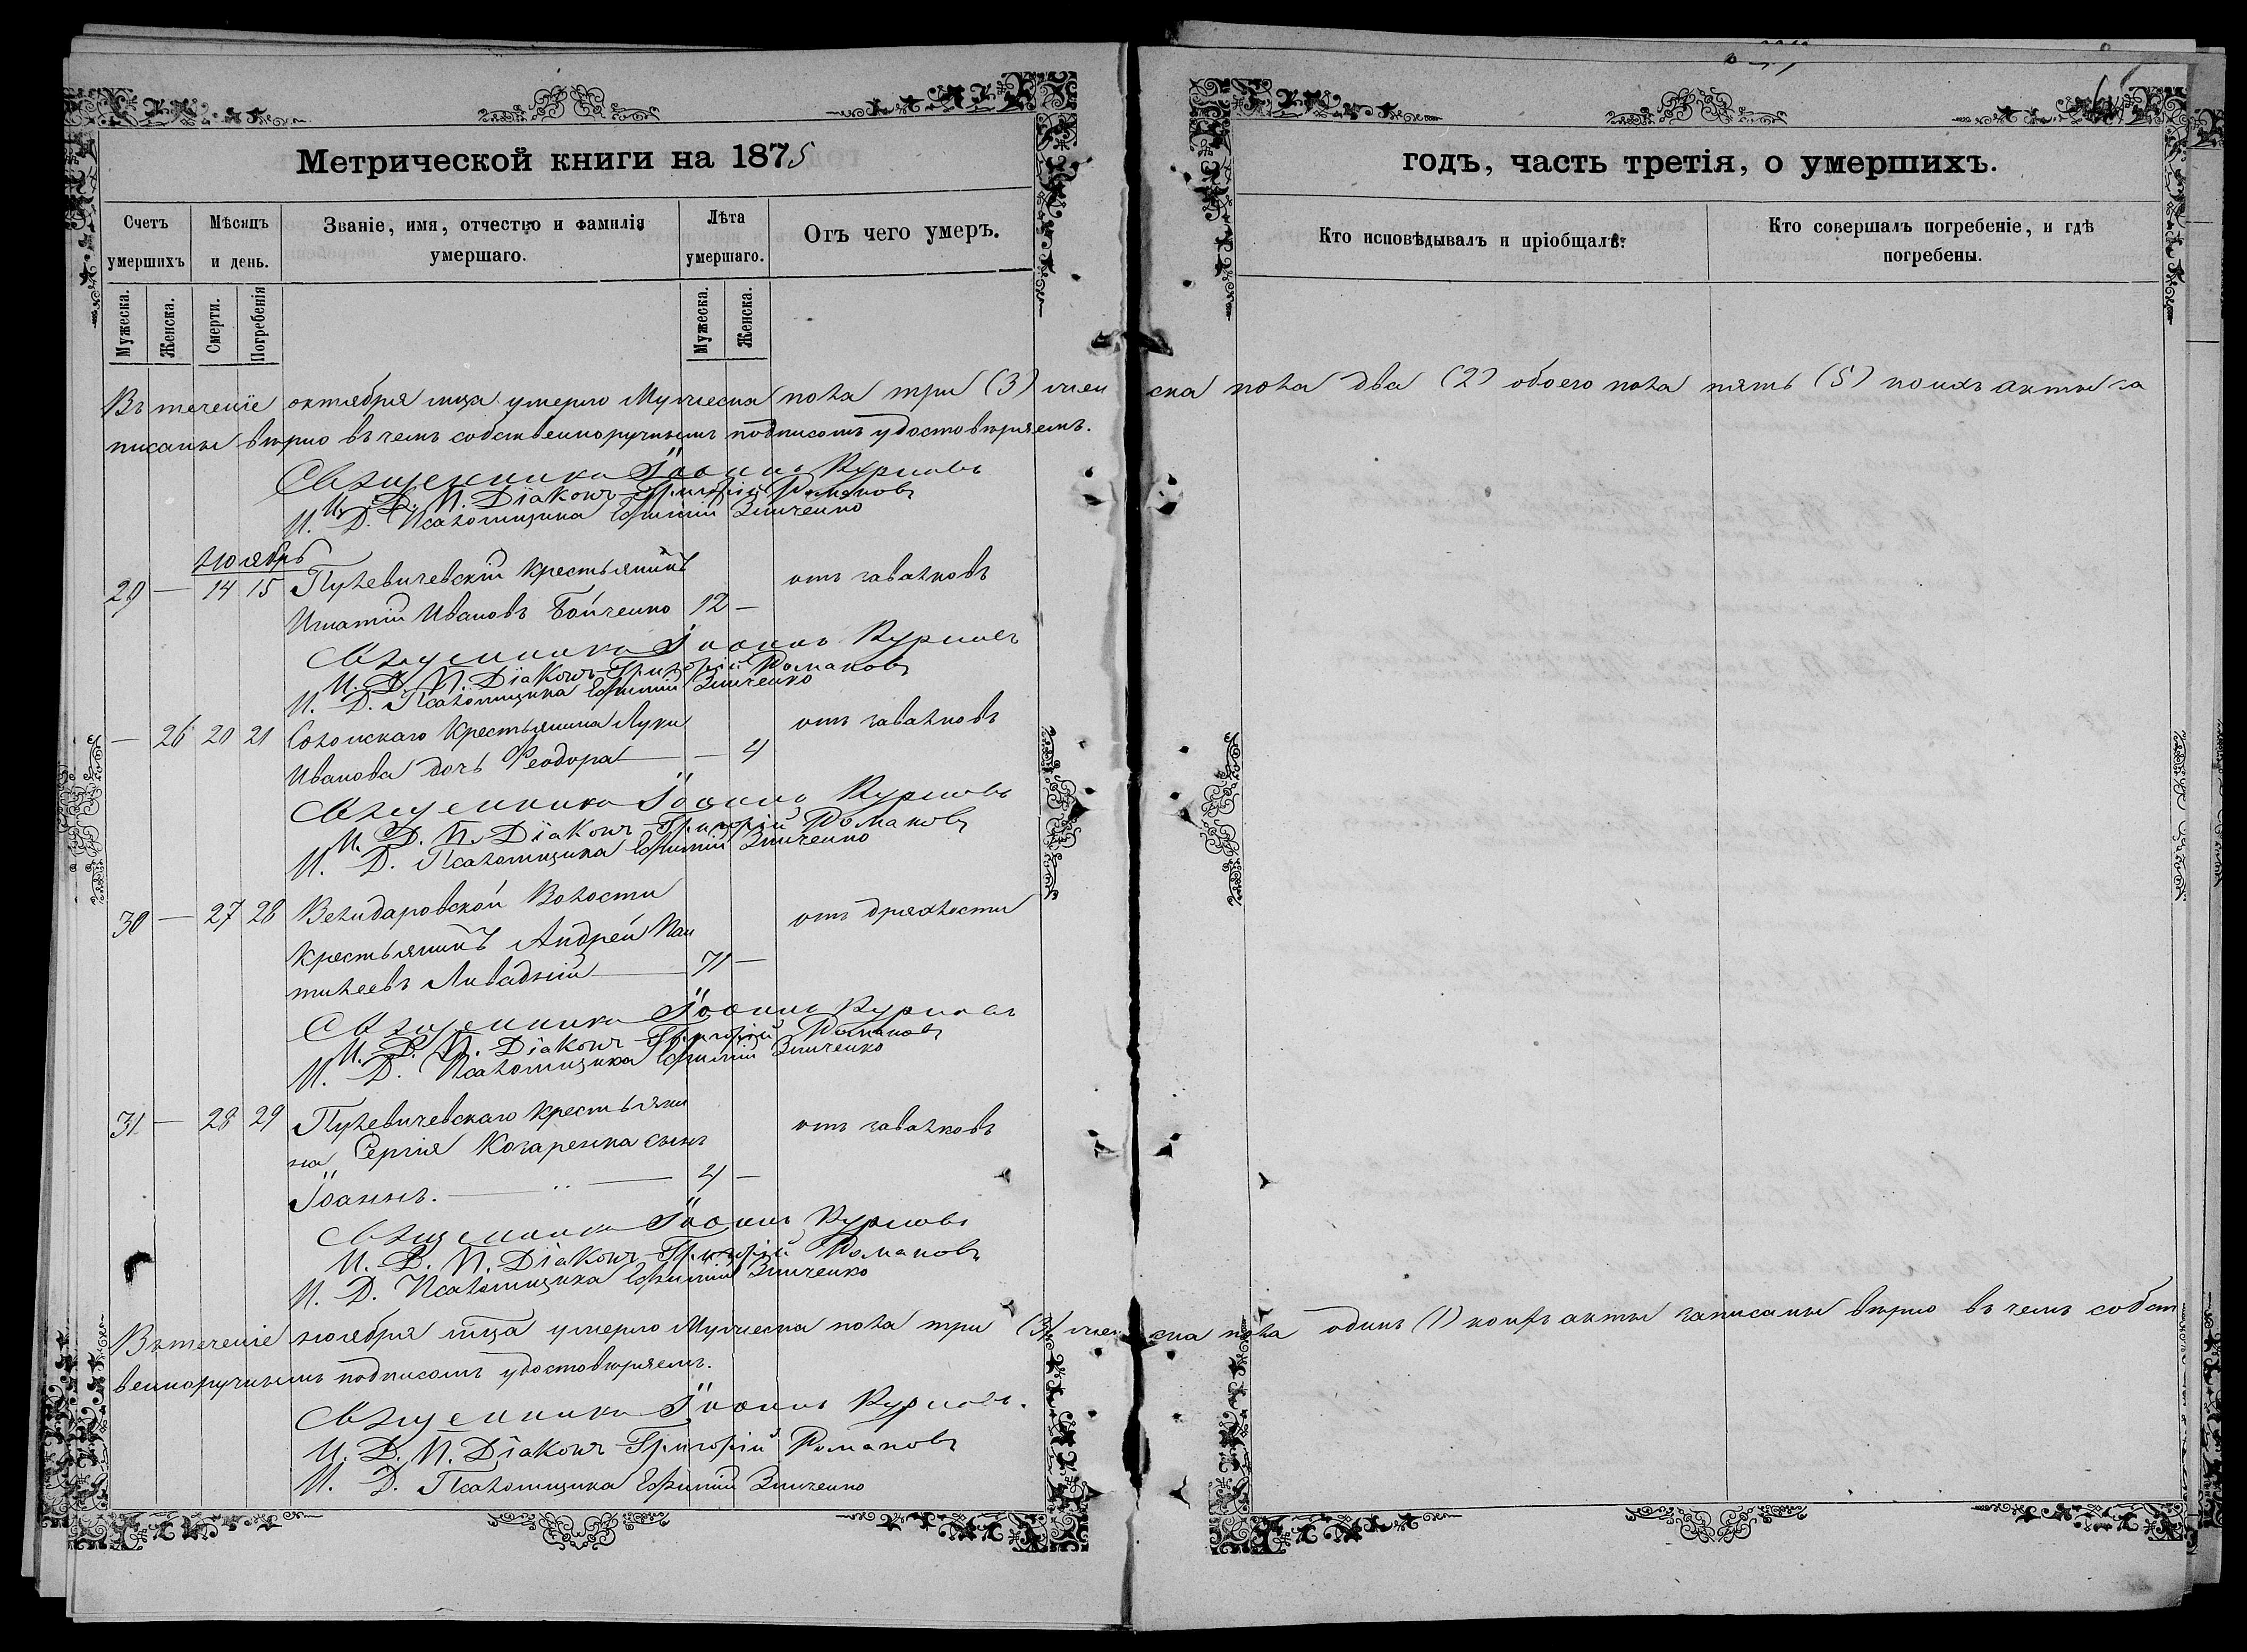 Метрической книги на 1875
годъ, часть третія, о умершихъ.
Счетъ умершихъ
Мѣсяцъ и день.
Званіе, имя, отчество и фамилія умершаго.
Лѣта умершаго.
Отъ чего умеръ.
Кто исповѣдывалъ и пріобщалъ.
Кто совершалъ погребеніе, и гдѣ погребены.
Мужеска.
Женска.
Смерти.
Погребенія
Мужеска.
Женска.
Въ теченіе октября мца умерло Мужеска пола три (3) женска пола два (2) обоего пола пять (5) коихъ акты за
писаны вѣрно въ чемъ собственноручнымъ подписомъ удостовѣряемъ.
Священникъ Іоаннъ Курловъ
И. Д. П. Діаконъ Григорій Романовъ
И. Д. Псаломщика Ефимій Зинченко
Ноябрь
29 — 14 15 Пулевичевскій крестьянинъ отъ завалковъ
Игнатій Ивановъ Бойченко 12 —
Священникъ Іоаннъ Курловъ
И. Д. П. Діаконъ Григорій Романовъ
И. Д. Псаломщика Ефимій Зинченко
— 26 20 21 Солонскаго крестьянина Луки отъ завалковъ
Иванова дочь Феодора — — 4
Священникъ Іоаннъ Курловъ
И. Д. П. Діаконъ Григорій Романовъ
И. Д. Псаломщика Ефимій Зинченко
30 — 27 28 Велидаровской Волости отъ дряхлости
крестьянинъ Андрей Пан
тилеевъ Ливадний — 71 —
Священникъ Іоаннъ Курловъ
И. Д. П. Діаконъ Григорій Романовъ
И. Д. Псаломщика Ефимій Зинченко
31 — 28 29 Пулевичевскаго крестьяни отъ завалковъ
на Сергія Кочаренка сынъ
Іоаннъ. — 4 —
Священникъ Іоаннъ Курловъ
И. Д. П. Діаконъ Григорій Романовъ
И. Д. Псаломщика Ефимій Зинченко
Въ теченіе ноября мца умерло Мужеска пола три (3) женска пола одинъ (1) коихъ акты записаны вѣрно въ чемъ собст
венноручнымъ подписомъ удостовѣряемъ.
Священникъ Іоаннъ Курловъ.
И. Д. П. Діаконъ Григорій Романовъ
И. Д. Псаломщика Ефимій Зинченко